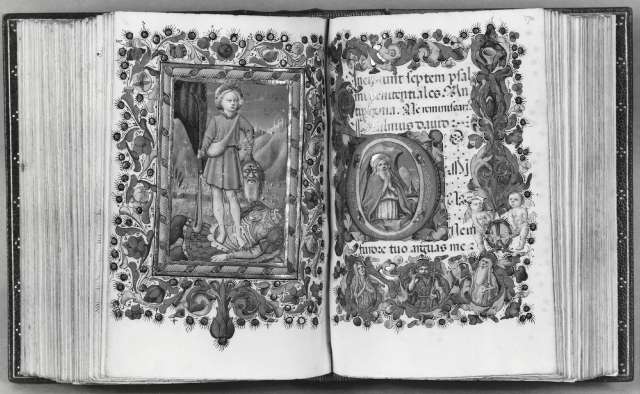 Incipiunt septem psal
mi penitentiales. An
tiphona. Ne reminiscari
psalmus dauid:
furore tuo arguas me: